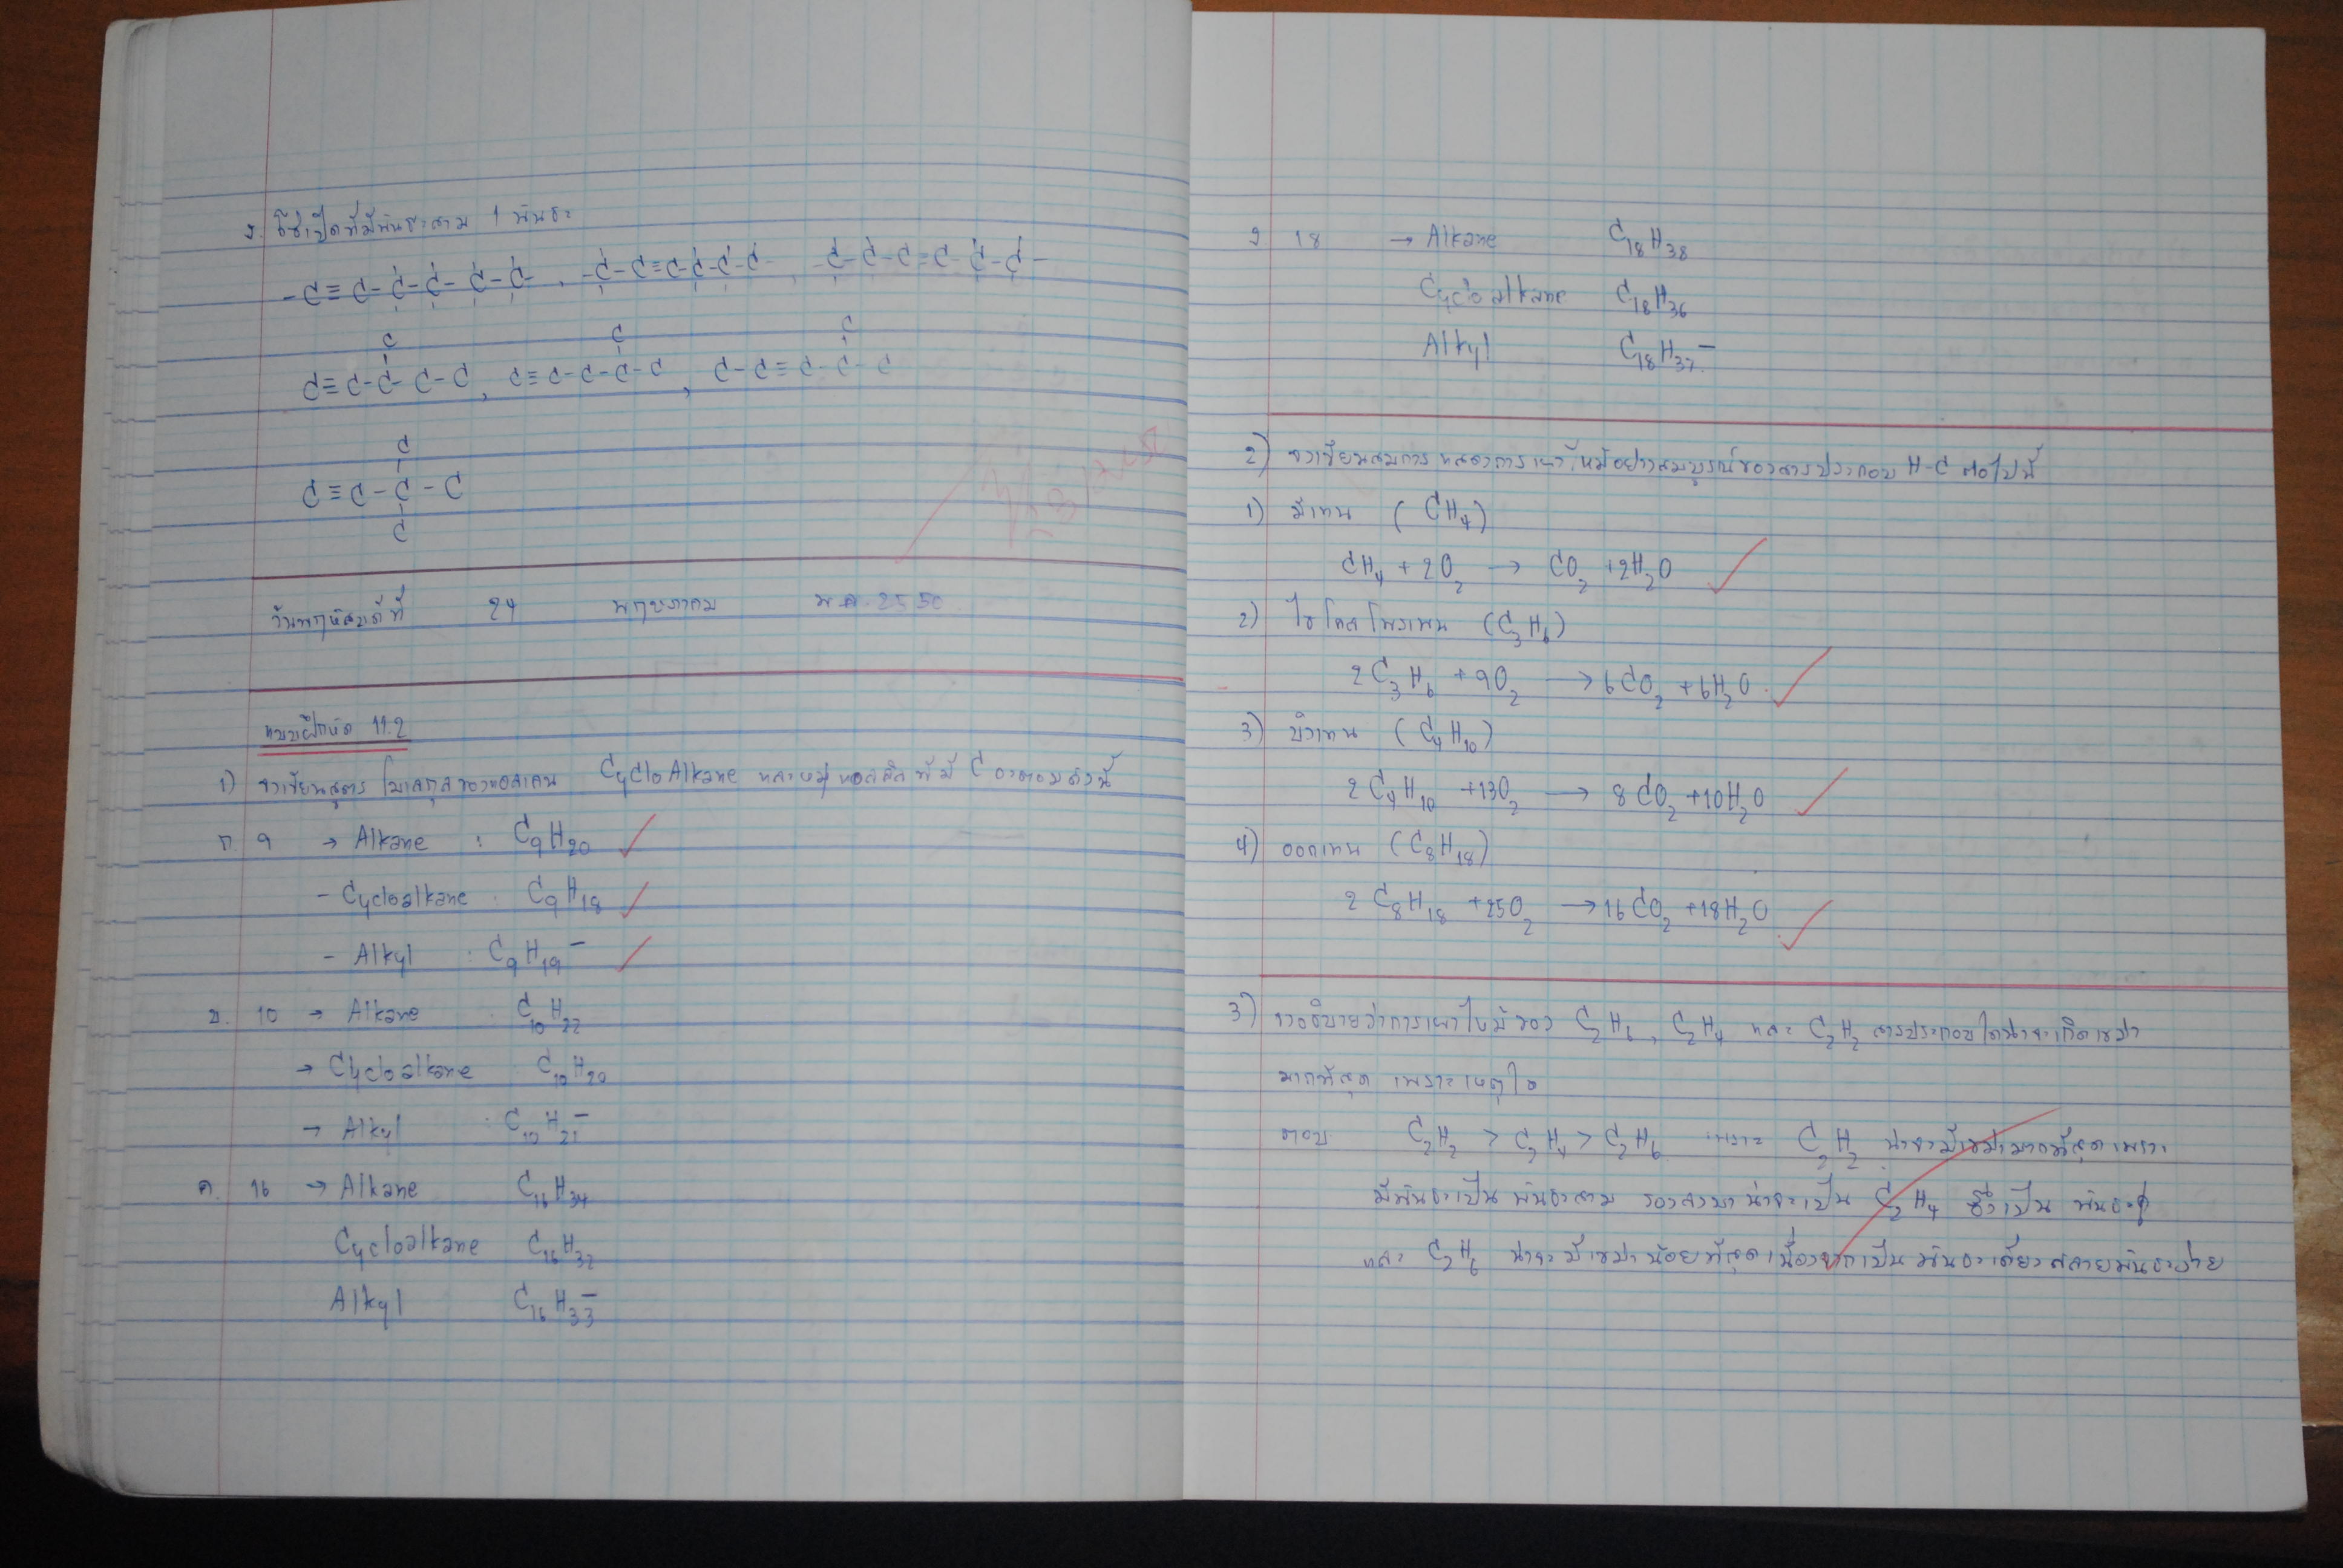 ง. โซ่เปิดที่มีพันธะสาม 1 พันธะ
-C≡C-C-C-C-C- , -C-C≡C-C-C-C- , -C-C-C≡C-C-C-
C C C
C≡C-C-C-C , C≡C-C-C-C , C-C≡C-C-C
C
C≡C-C-C
C
วันพฤหัสบดีที่ 24 พฤษภาคม พ.ศ. 2550
แบบฝึกหัด 11.2
1) จงเขียนสูตรโมเลกุลของแอลเคน CycloAlkane และหมู่แอลคิลที่มี C อะตอมดังนี้
ก. 9 → Alkane : C9H20
- Cycloalkane : C9H18
- Alkyl : C9H19–
ข. 10 → Alkane : C10H22
→ Cycloalkane : C10H20
→ Alkyl : C10H21–
ค. 16 → Alkane C16H34
Cycloalkane C16H32
Alkyl C16H33–
ง 18 → Alkane C18H38
Cycloalkane C18H36
Alkyl C18H37–
2) จงเขียนสมการแสดงการเผาไหม้อย่างสมบูรณ์ของสารประกอบ H-C ต่อไปนี้
1) มีเทน (CH4)
CH4 + 2O2 → CO2 + 2H2O
2) ไซโคลโพรเพน (C3H6)
2C3H6 + 9O2 → 6CO2 + 6H2O
3) บิวเทน (C4H10)
2C4H10 + 13O2 → 8CO2 + 10H2O
4) ออกเทน (C8H18)
2C8H18 + 25O2 → 16CO2 + 18H2O
3) จงอธิบายว่าการเผาไหม้ของ C2H6, C2H4 และ C2H2 สารประกอบใดน่าจะเกิดเขม่า
มากที่สุด เพราะเหตุใด
ตอบ C2H2 > C2H4 > C2H6 เพราะ C2H2 น่าจะมีเขม่ามากที่สุดเพราะ
มีพันธะเป็น พันธะสาม รองลงมาน่าจะเป็น C2H4 ซึ่งเป็น พันธะคู่
และ C2H6 น่าจะมีเขม่าน้อยที่สุดเนื่องจากเป็นพันธะเดี่ยวสลายพันธะง่าย